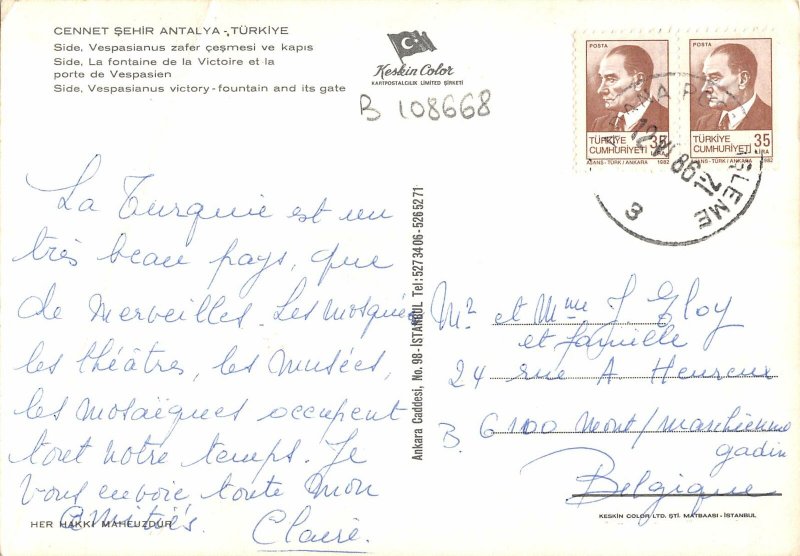 CENNET ŞEHİR ANTALYA - TÜRKİYE
Side, Vespasianus zafer çeşmesi ve kapıs
Side, La fontaine de la Victoire et la
porte de Vespasien
Side, Vespasianus victory - fountain and its gate
Keskin Color
KARTPOSTALCILIK LİMİTED ŞİRKETİ
B 108668
POSTA
TÜRKİYE
CUMHURİYETİ
35
AJANS - TÜRK / ANKARA 1982
POSTA
TÜRKİYE
CUMHURİYETİ
35
LİRA
AJANS - TÜRK / ANKARA 1982
86-12
3
La Turquie est un
très beau pays, que
de merveilles. Les mosquées
les théâtres, les musées,
les mosaïques occupent
tout notre temps. Je
vous envoie toute mon
amitiés.
Claire.
Ankara Caddesi, No. 98 - İSTANBUL Tel: 527 34 06 - 526 52 71
Mr et Mme J. Gloy
et famille
24 rue A Heureux
B. 6100 Mont/marchienne
gadin
Belgique
HER HAKKI MAHFUZDUR
KESKİN COLOR LTD. ŞTİ. MATBAASI - İSTANBUL